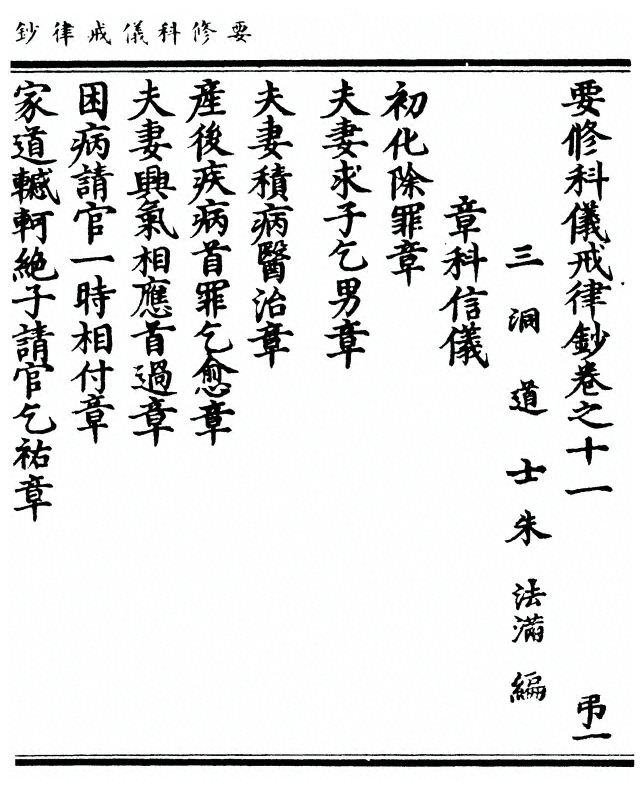 要修科儀戒律鈔
要修科儀戒律鈔卷之十一 弔一
三洞道士朱法滿編
章科信儀
初化除罪章
夫妻求子乞男章
夫妻積病醫治章
産後疾病首罪乞愈章
夫妻興氣相應首過章
困病請官一時相付章
家道轗軻絶子請官乞祐章